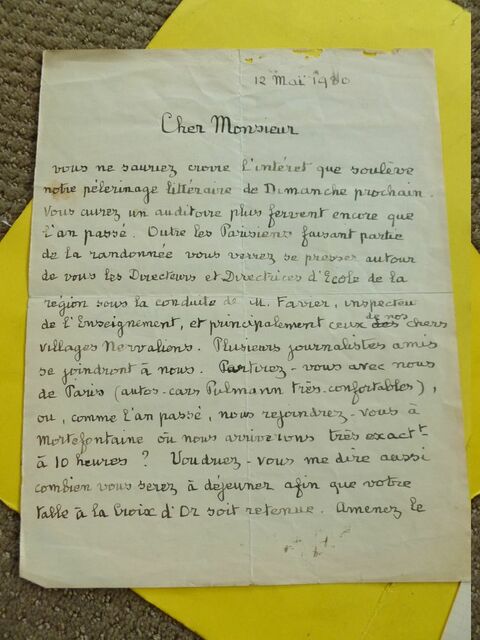 12 Mai 1980
Cher Monsieur
vous ne sauriez croire l'intéret que soulève
notre pélerinage littéraire de Dimanche prochain.
Vous aurez un auditoire plus fervent encore que
l'an passé. Outre les Parisiens faisant partie
de la randonnée vous verrez se presser autour
de vous les Directeurs et Directrices d'École de la
région sous la conduite de M. Favier, inspecteur
de l'Enseignement, et principalement ceux de nos chers
villages Nervaliens. Plusieurs journalistes amis
se joindront à nous. Partirez-vous avec nous
de Paris (autos-cars Pulmann très-confortables),
ou, comme l'an passé, nous rejoindrez-vous à
Mortefontaine où nous arriverons très exactt
à 10 heures ? Voudriez-vous me dire aussi
combien vous serez à déjeuner afin que votre
table à la Croix d'Or soit retenue. Amenez le